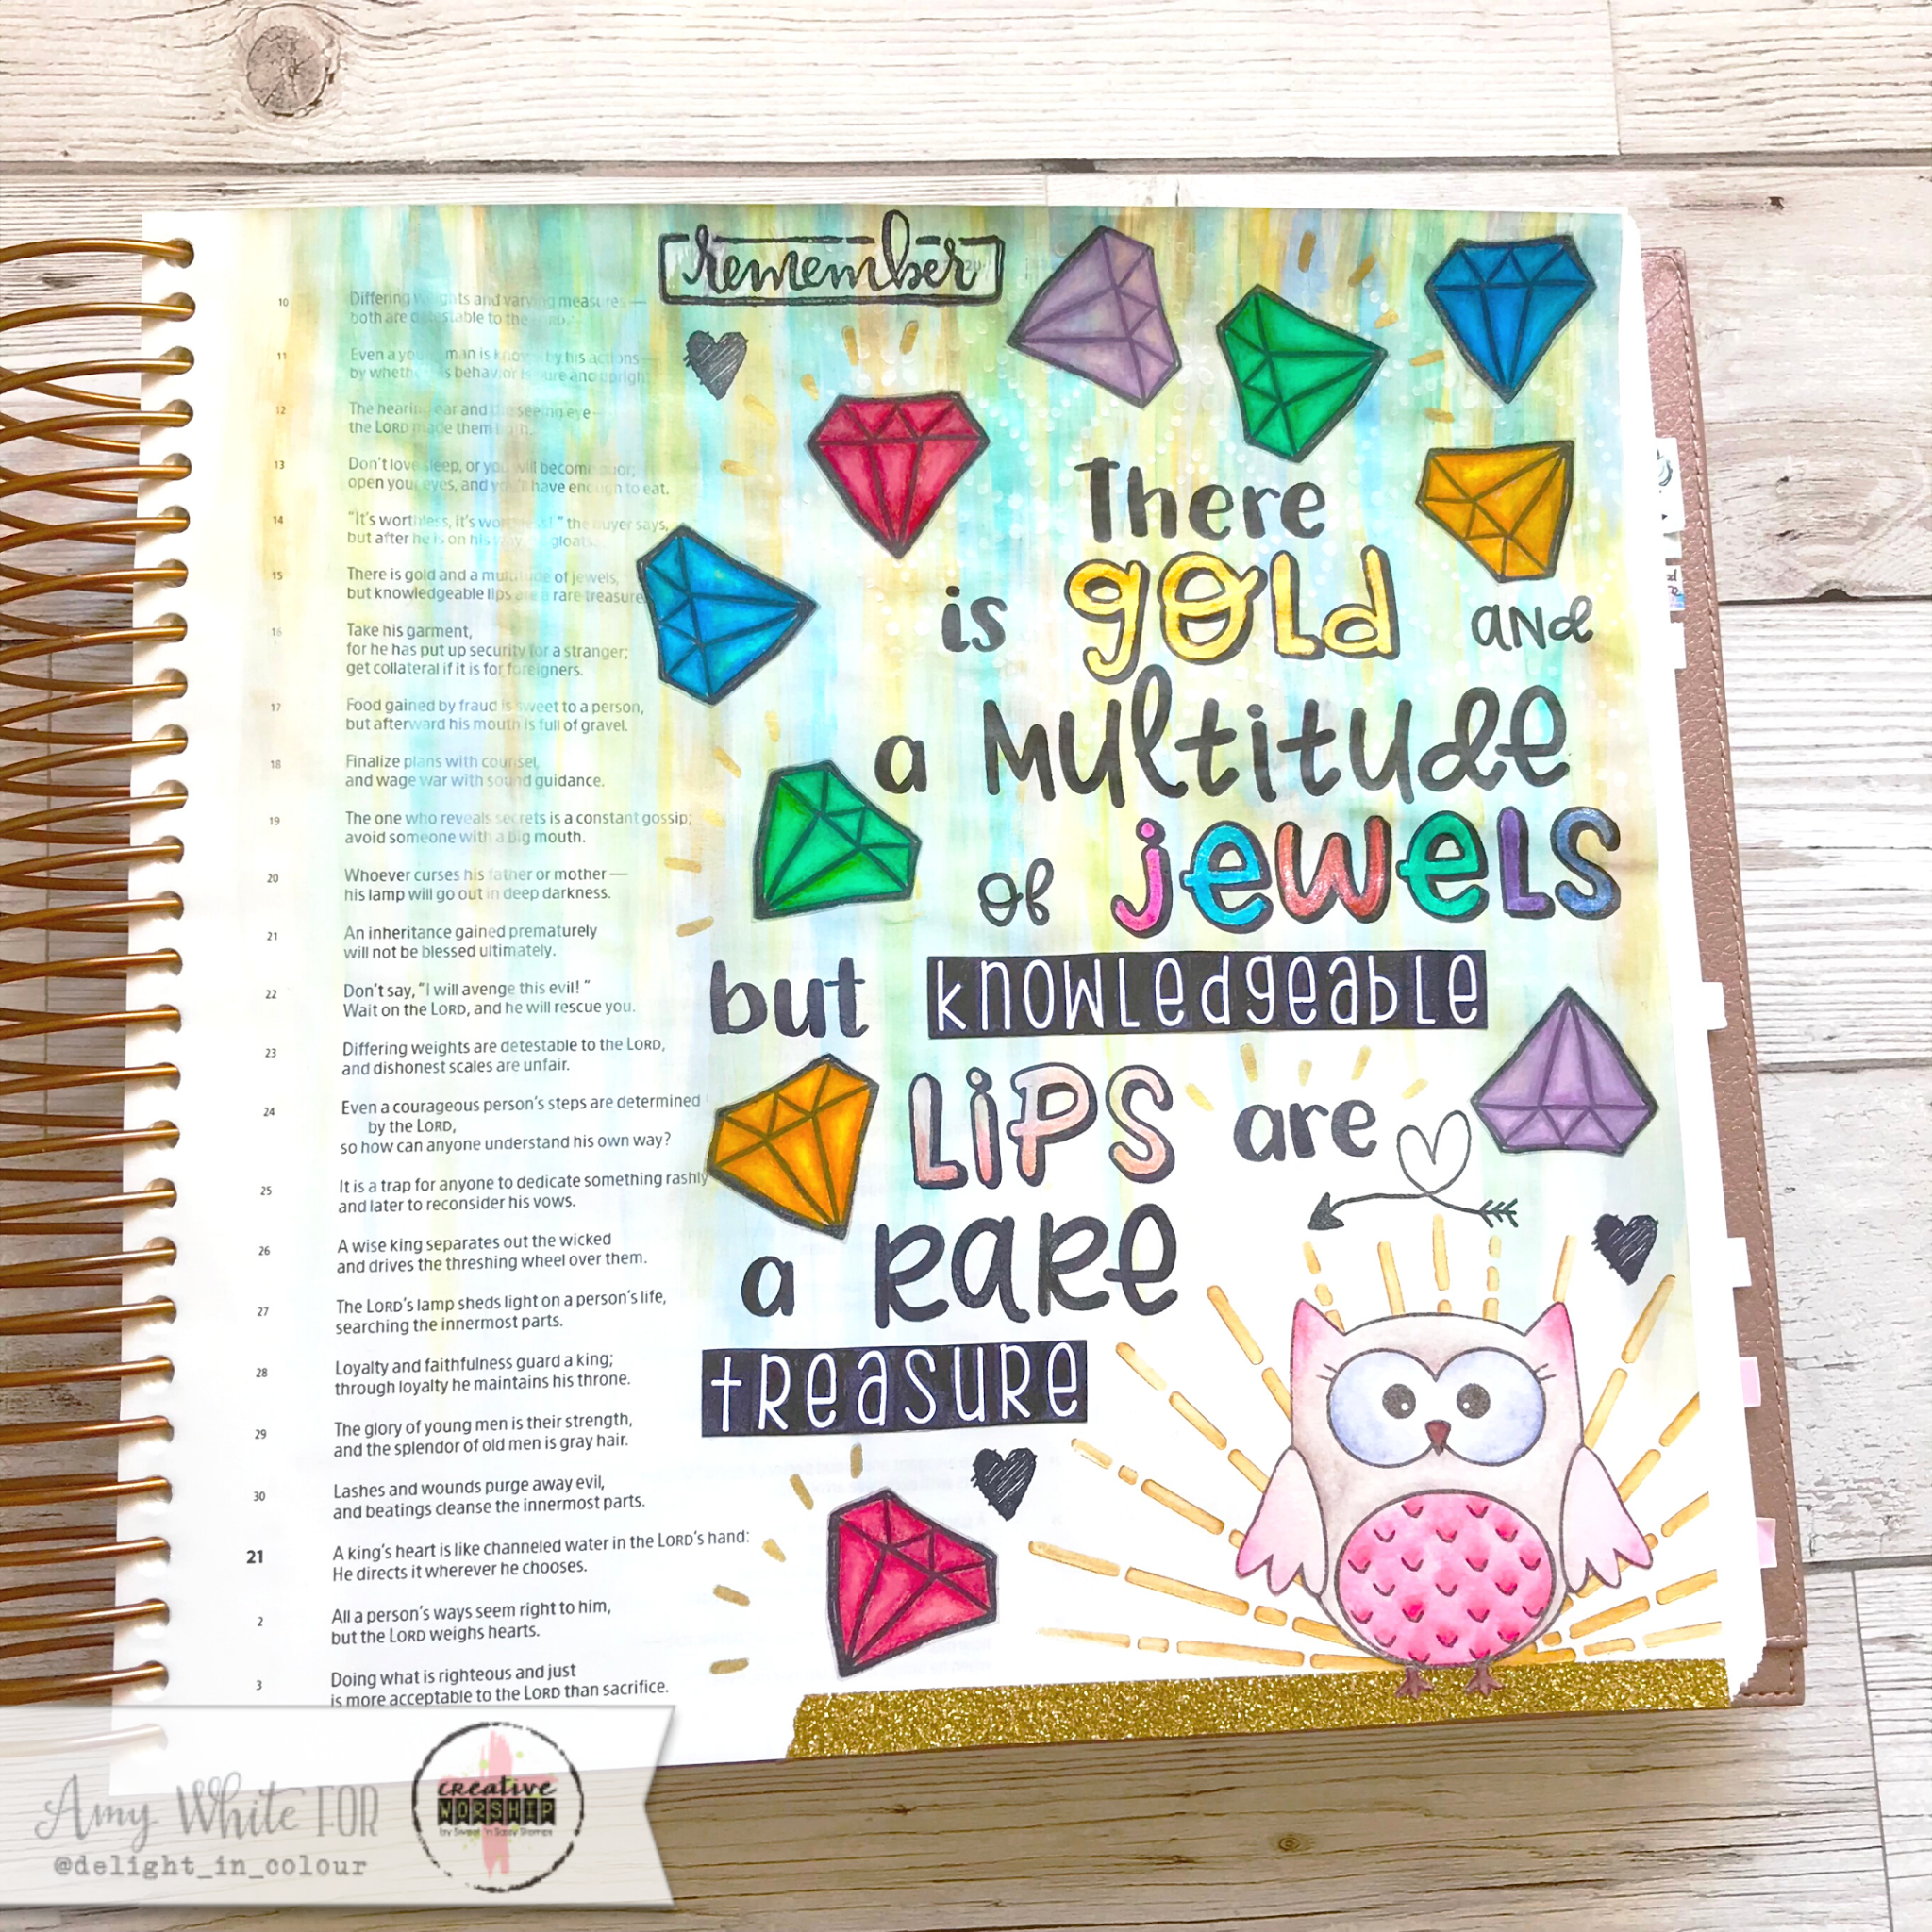 remember
10 Differing weights and varying measures —
both are detestable to the LORD.
11 Even a young man is known by his actions —
by whether his behavior is pure and upright.
12 The hearing ear and the seeing eye —
the LORD made them both.
13 Don't love sleep, or you will become poor;
open your eyes, and you'll have enough to eat.
14 "It's worthless, it's worthless!" the buyer says,
but after he is on his way, he gloats.
15 There is gold and a multitude of jewels,
but knowledgeable lips are a rare treasure.
16 Take his garment,
for he has put up security for a stranger;
get collateral if it is for foreigners.
17 Food gained by fraud is sweet to a person,
but afterward his mouth is full of gravel.
18 Finalize plans with counsel,
and wage war with sound guidance.
19 The one who reveals secrets is a constant gossip;
avoid someone with a big mouth.
20 Whoever curses his father or mother —
his lamp will go out in deep darkness.
21 An inheritance gained prematurely
will not be blessed ultimately.
22 Don't say, "I will avenge this evil!"
Wait on the LORD, and he will rescue you.
23 Differing weights are detestable to the LORD,
and dishonest scales are unfair.
24 Even a courageous person's steps are determined
by the LORD,
so how can anyone understand his own way?
25 It is a trap for anyone to dedicate something rashly
and later to reconsider his vows.
26 A wise king separates out the wicked
and drives the threshing wheel over them.
27 The LORD's lamp sheds light on a person's life,
searching the innermost parts.
28 Loyalty and faithfulness guard a king;
through loyalty he maintains his throne.
29 The glory of young men is their strength,
and the splendor of old men is gray hair.
30 Lashes and wounds purge away evil,
and beatings cleanse the innermost parts.
21 A king's heart is like channeled water in the LORD's hand:
He directs it wherever he chooses.
2 All a person's ways seem right to him,
but the LORD weighs hearts.
3 Doing what is righteous and just
is more acceptable to the LORD than sacrifice.
There
is gold and
a multitude
of jewels
but knowledgeable
lips are
a rare
treasure
Amy White FOR
@delight_in_colour
creative
WORSHIP
by Sweet 'n Sassy Stamps